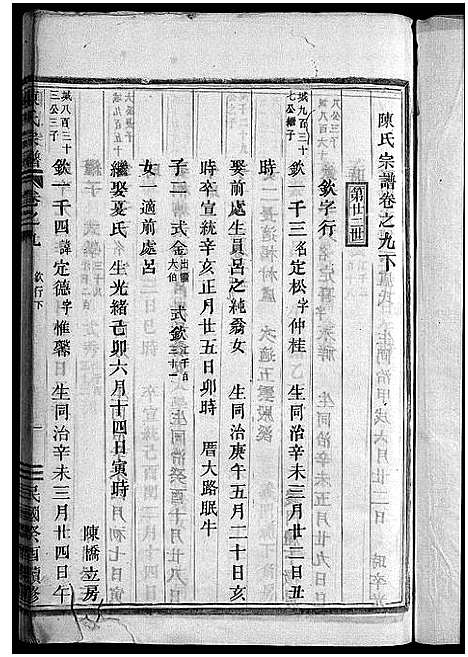 陳氏宗譜卷之九下
第廿二世
欽字行
城八百三十
七公繼子
欽一千三名定松字仲桂 生同治辛未三月廿二日丑
時
娶前處生員呂之純翁女 生同治庚午五月二十日亥
時卒宣統辛亥正月廿五日卯時 厝大路眠牛
子二 式金出繼大伯 式欽
女一適前處呂
繼娶夏氏 生光緒己卯六月十四日寅時
陳橋立房
城八百三十
三公三子
欽一千四諱定德字惟馨 生同治辛未三月廿四日午
陳氏宗譜
卷之九
欽行下
一
民國癸酉續修